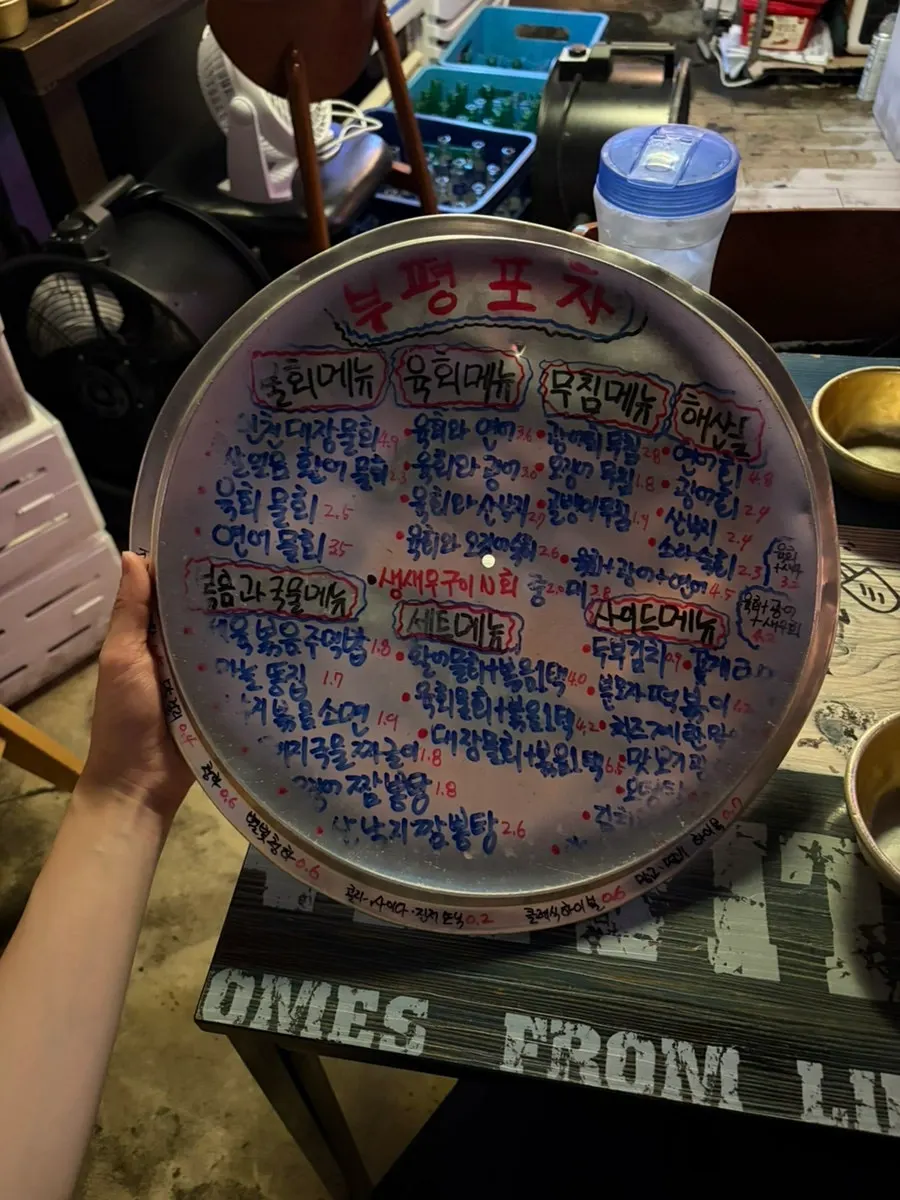 부평포차
물회메뉴
인천대장물회 4.9
활어 물회 2.5
육회 물회 2.5
연어 물회 3.5
육회메뉴
육회와 연어 3.6
육회와 광어 3.0
육회와 산낙지 2.7
육회와 오징어숙회 2.6
무침메뉴
광어회무침 2.8
오징어 무침 1.8
골뱅이무침 1.9
해산물
연어회 4.8
광어회 2.9
산낙지 2.4
소라숙회 2.3
육회+광어+연어 4.5
생새우구이 N 회
볶음과국물메뉴
제육볶음주먹밥 1.8
마늘똥집 1.7
볶음소면 1.9
김치국물 짜글이 1.8
짬뽕탕 1.8
낙지짬뽕탕 2.6
세트메뉴
활어물회+볶음1택 4.0
육회물회+볶음1택 4.2
대장물회+볶음1택 6.5
사이드메뉴
두부김치 0.9
분모자떡볶이 1.2
치즈계란말
0.4
0.6
별빛청하 0.6
콜라·사이다·진저 토닉 0.2
클래식하이볼 0.6
하이볼 0.7
OMES FROM LI